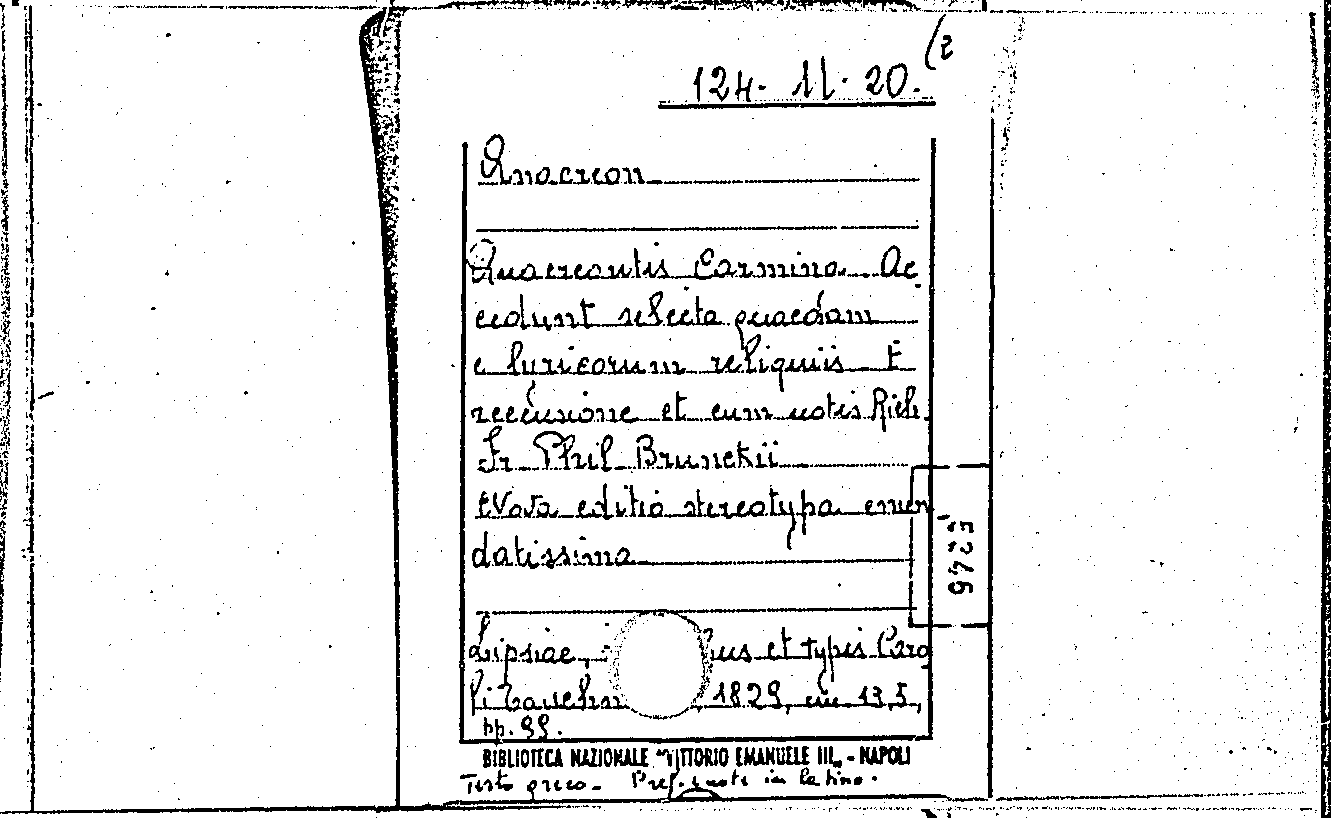 (2
124. 11. 20.
Anacreon
Anacreontis Carmina. Ac
cedunt selecta quaedam
e lyricorum reliquiis. E
recensione et cum notis Rich.
Fr. Phil. Brunckii
Nova editio stereotypa emen
datissima
5246
Lipsiae, us et typis Caro
li Tauchn 1829, cm. 13,5,
pp. 99.
BIBLIOTECA NAZIONALE "VITTORIO EMANUELE III„ - NAPOLI
Testo greco. Pref. e note in latino.